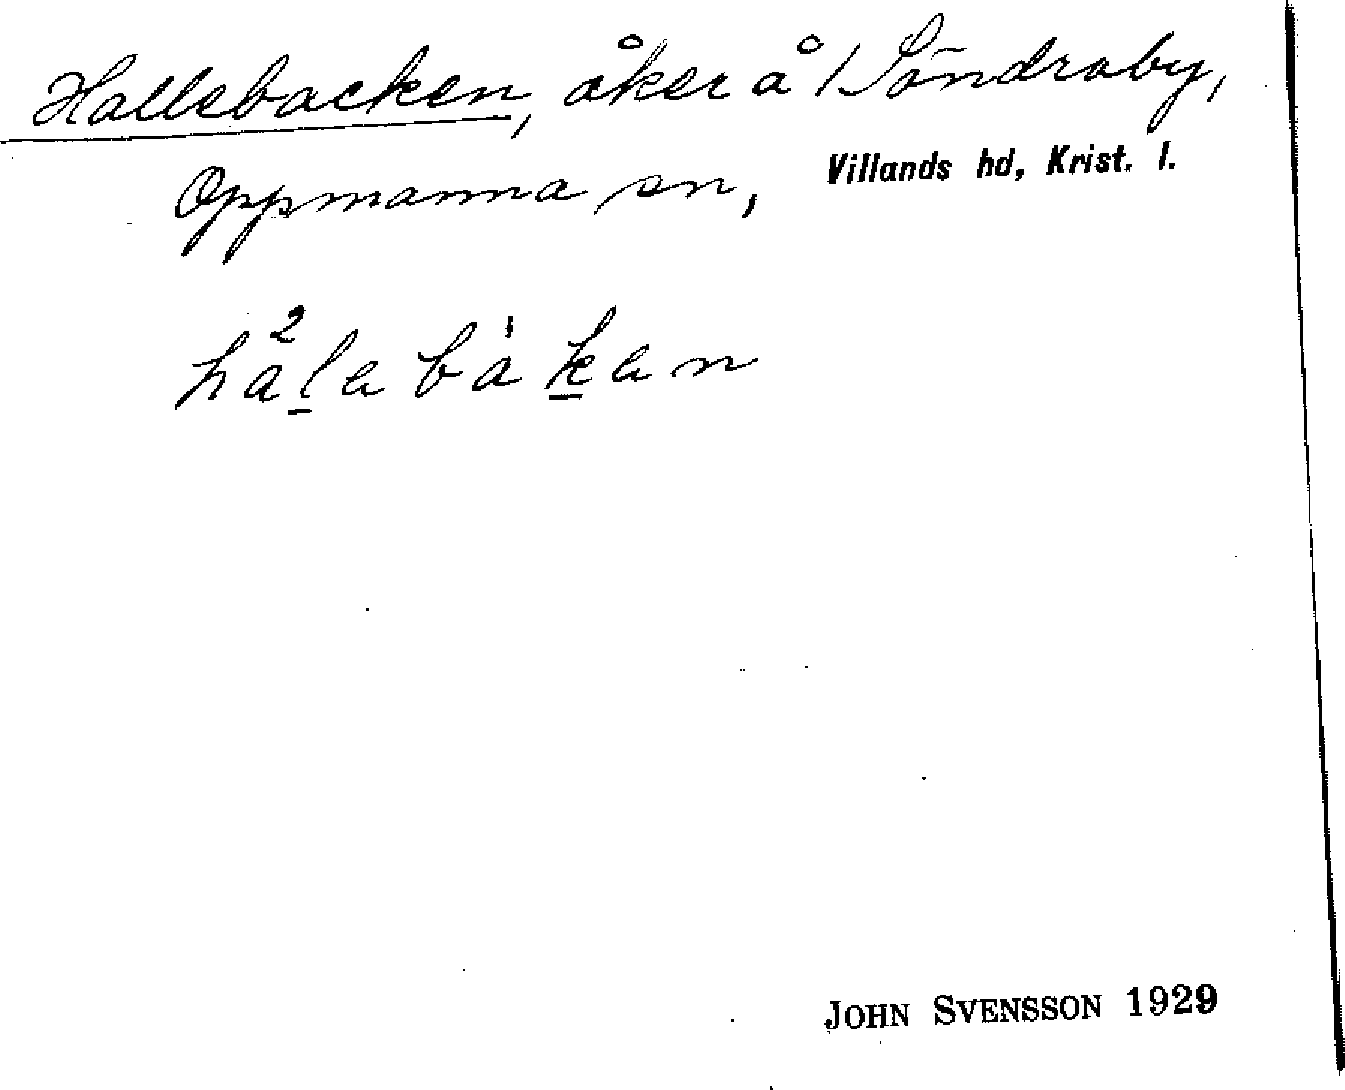 Hallebacken, åker å 1 Söndraby,
Oppmanna sn, Villands hd, Krist. l.
JOHN SVENSSON 1929